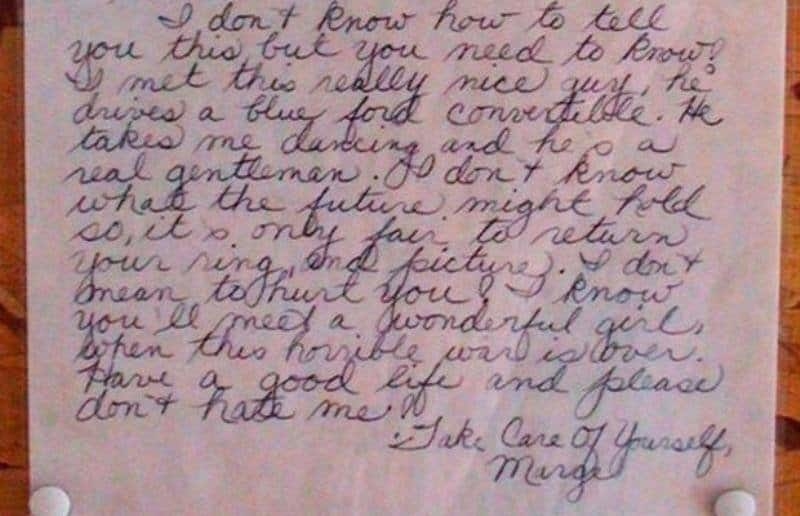 I don't know how to tell
you this but you need to know!
I met this really nice guy, he
drives a blue ford convertible. He
takes me dancing and he's a
real gentleman. I don't know
what the future might hold
so, it's only fair to return
your ring, and picture. I don't
mean to hurt you! I know
you'll meet a wonderful girl,
when this horrible war is over.
Have a good life and please
don't hate me!!
Take Care Of Yourself,
Marge